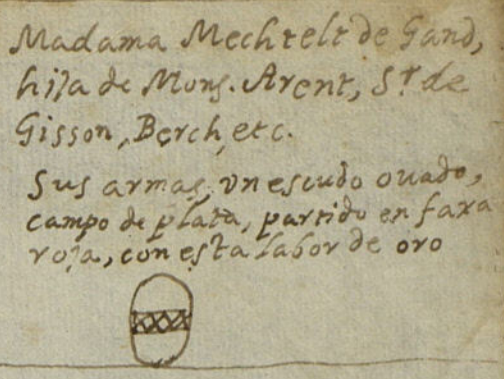 Madama Mechtelt de Gand,
hija de Mons. Arent, Sr. de
Gisson, Berch, etc.
Sus armas, vn escudo ouado,
campo de plata, partido en faxa
roja, con esta labor de oro